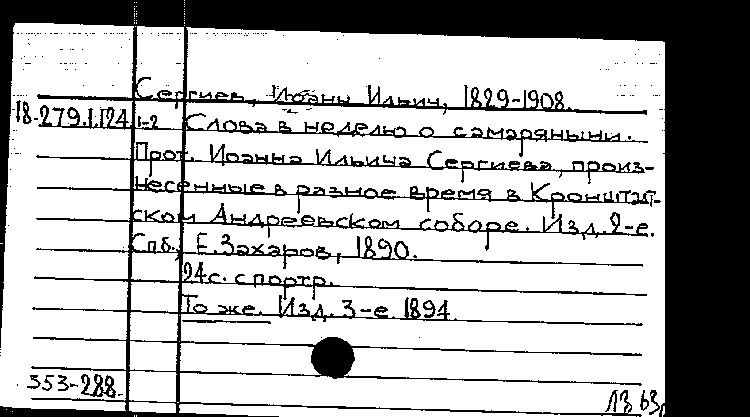 Сергиев, Иоанн Ильич, 1829-1908.
18.279.1.124 1-2 Слова в неделю о самаряныни.
Прот. Иоанна Ильича Сергиева, произ-
несенные в разное время в Кронштат-
ском Андреевском соборе. Изд. 2-е.
Спб., Е. Захаров, 1890.
24с. с портр.
То же. Изд. 3-е 1894.
353-288.